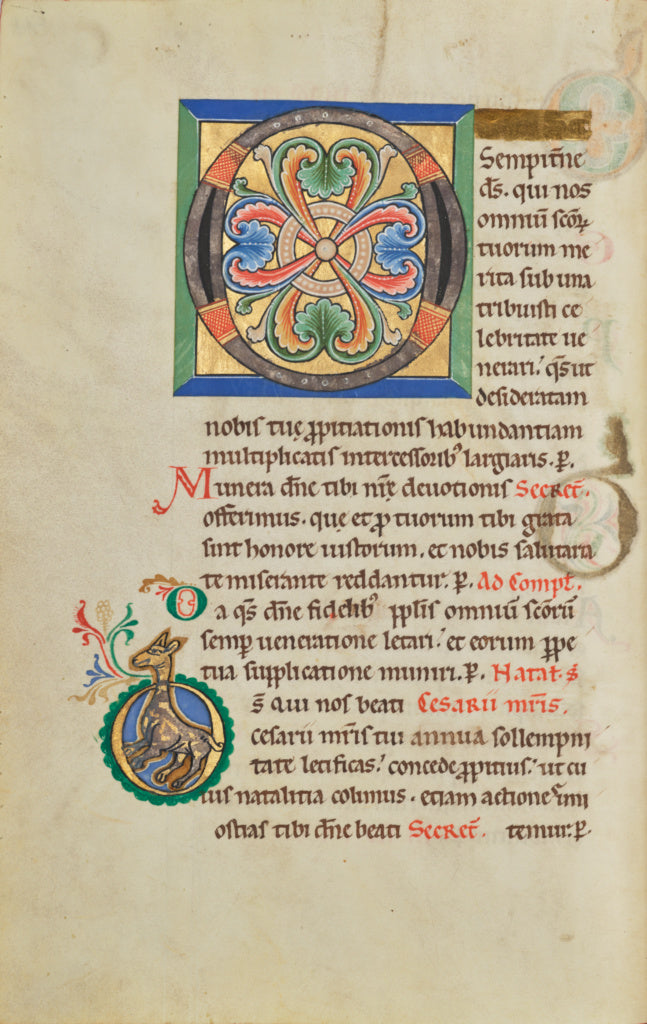 O Sempitne
ds. qui nos
omniū scōꝝ
tuorum me
rita sub una
tribuisti ce
lebritate ue
nerari.' qs ut
desideratam
nobis tuę ꝓpitiationis habundantiam
multiplicatis intercessorib' largiaris. P.
Munera dne tibi nrę deuotionis Secret.
offerimus. quę et ꝓ tuorum tibi grata
sint honore iustorum. et nobis salutaria
te miserante reddantur. P. Ad Compl.
Da qs dne fidelib' pplis omniū scōrū
semꝑ ueneratione letari.' et eorum ꝑpe
tua supplicatione muniri. P. Natat. s̄
Ds̄ qui nos beati Cesarii mris.
cesarii mris tui annua sollempni
tate letificas.' concede ꝓpitius.' ut cu
ius natalitia colimus. etiam actione imi
ostias tibi dne beati Secret. temur. P.